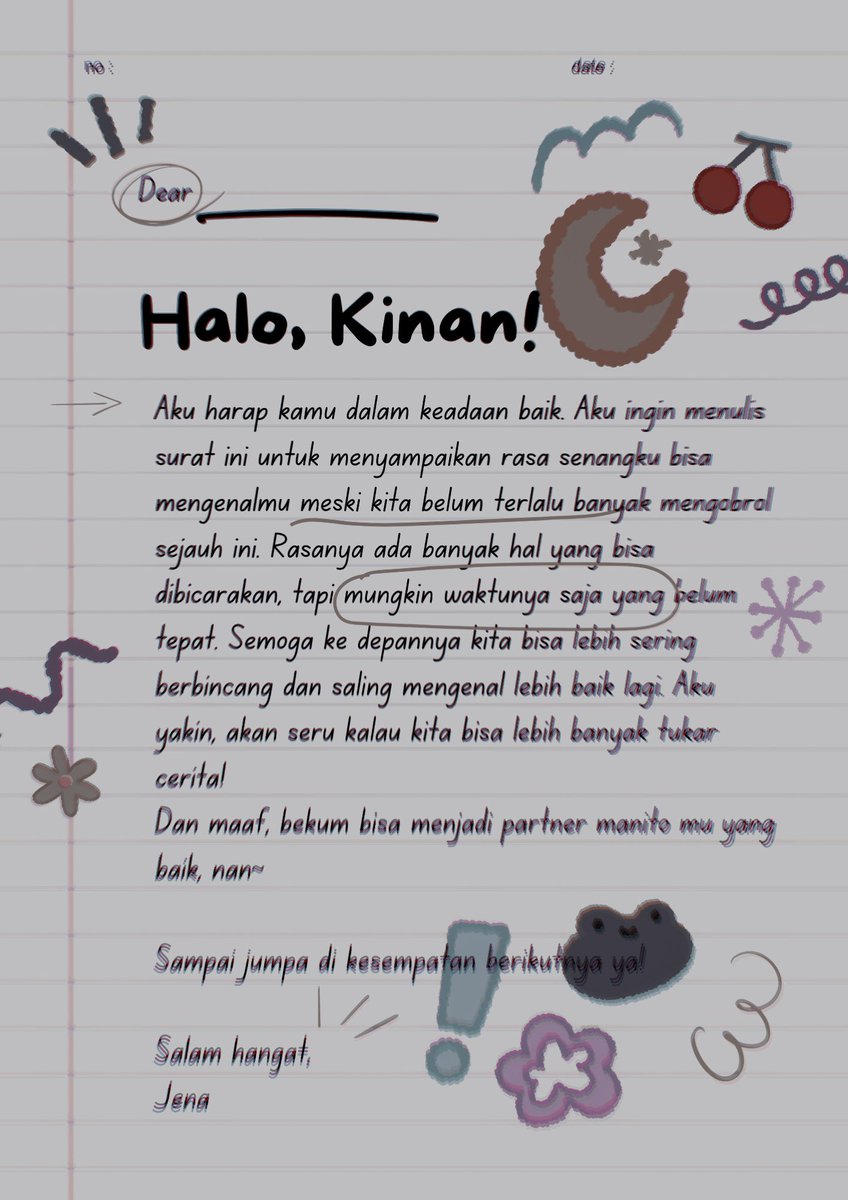 no :
date :
Dear
Halo, Kinan!
Aku harap kamu dalam keadaan baik. Aku ingin menulis
surat ini untuk menyampaikan rasa senangku bisa
mengenalmu meski kita belum terlalu banyak mengobrol
sejauh ini. Rasanya ada banyak hal yang bisa
dibicarakan, tapi mungkin waktunya saja yang belum
tepat. Semoga ke depannya kita bisa lebih sering
berbincang dan saling mengenal lebih baik lagi. Aku
yakin, akan seru kalau kita bisa lebih banyak tukar
cerita!
Dan maaf, bekum bisa menjadi partner manito mu yang
baik, nan~
Sampai jumpa di kesempatan berikutnya ya!
Salam hangat,
Jena